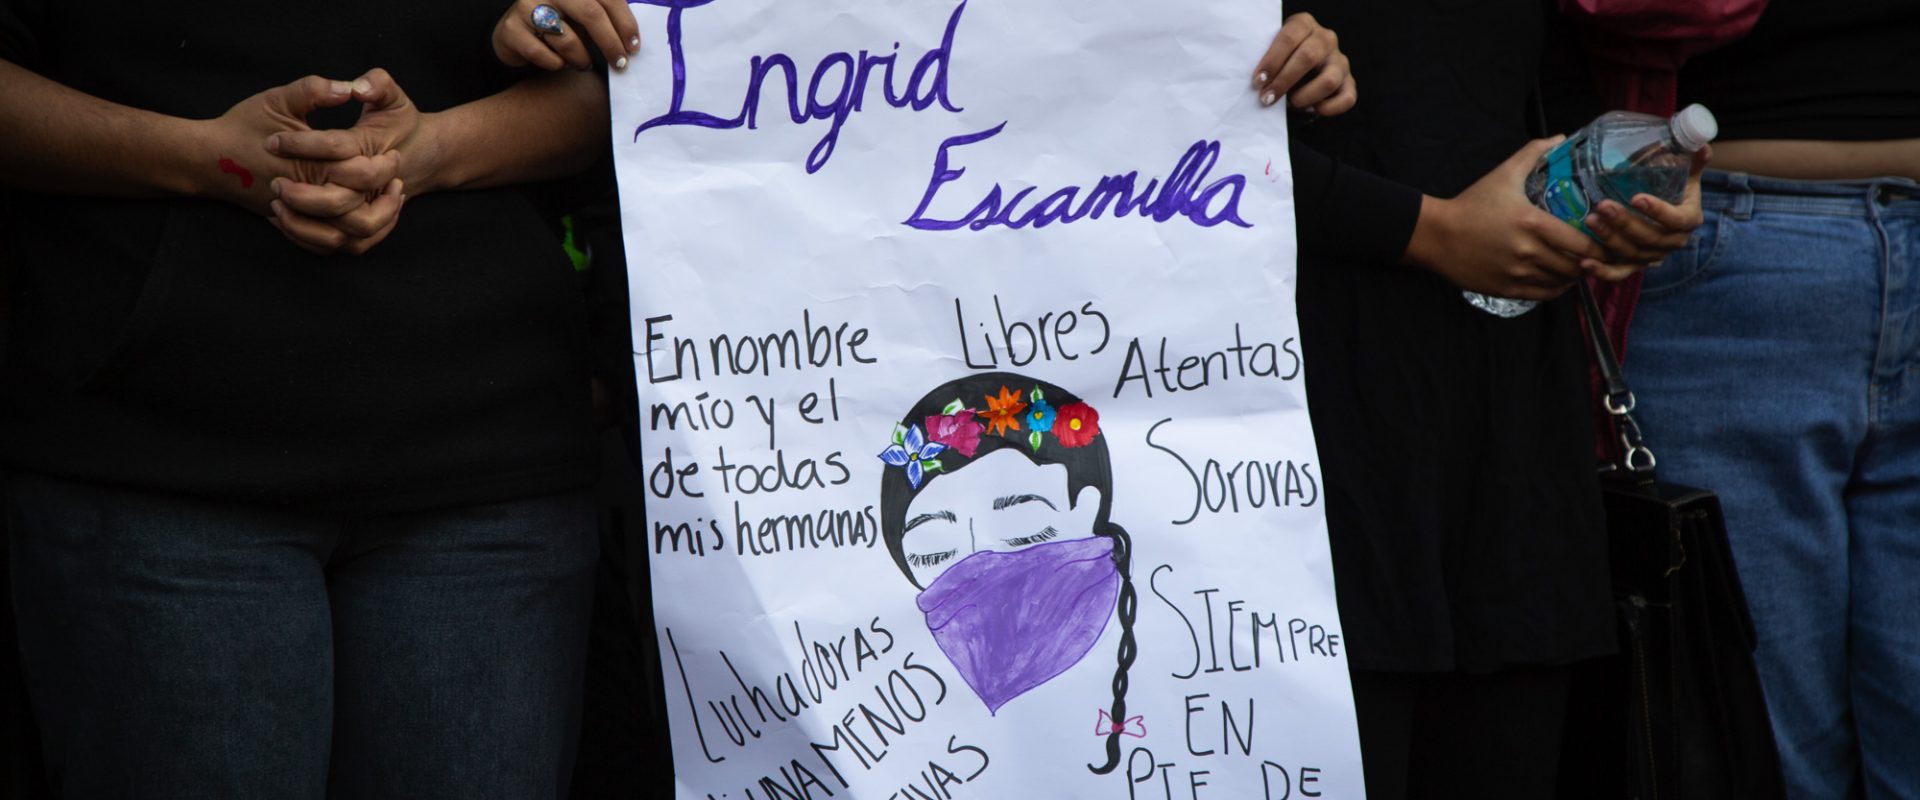 Ingrid
Escamilla
En nombre
mío y el
de todas
mis hermanas
Libres
Atentas
Sororas
SIEMPRE
EN
PIE DE
Luchadoras
ni UNA MENOS